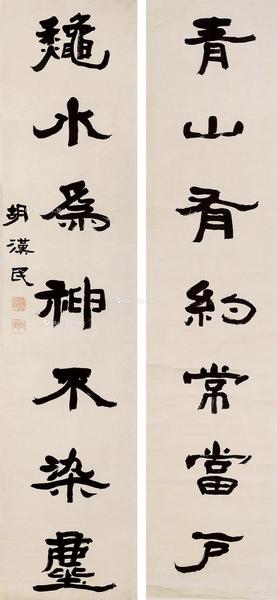 青山有約常當戶
龝水為神不染塵
胡漢民